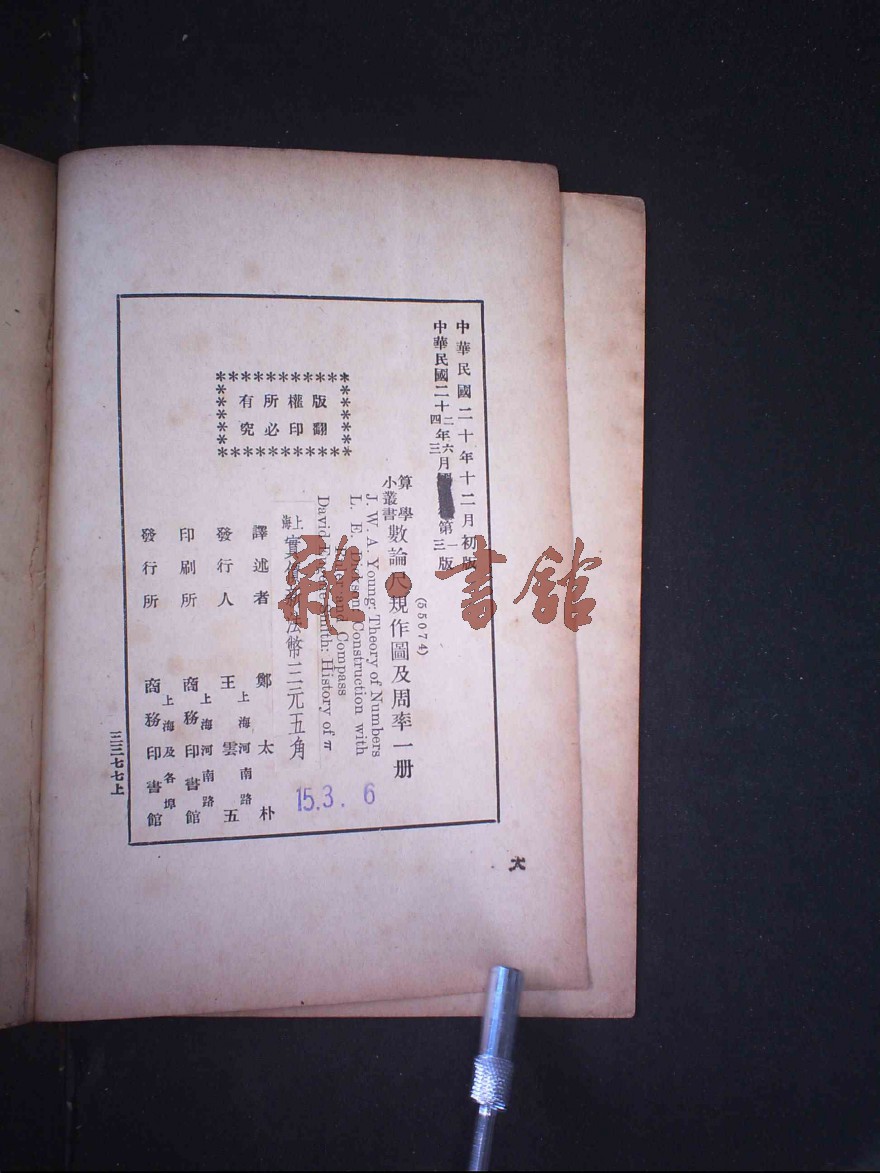 中華民國二十年十二月初版
中華民國二十二年六月
四 三 第一版
三
算學
小叢書
數論尺規作圖及周率一册
(55074)
J. W. A. Young: Theory of Numbers
L. E. Dickson: Construction with
Ruler and Compass
David Eugene Smith: History of π
上海
實價新法幣三元五角
15.3.6
版權所有
翻印必究
譯述者 鄭太朴
上海河南路
發行人 王雲五
上海河南路
印刷所 商務印書館
上海及各埠
發行所 商務印書館
三三七七上
雜·書館